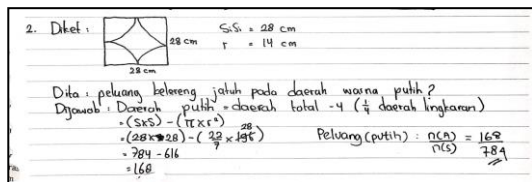 2. Diket :
28 cm
28 cm
Sisi = 28 cm
r = 14 cm
Dita : peluang kelereng jatuh pada daerah warna putih ?
Dijawab : Daerah putih = daerah total - 4 (1/4 daerah lingkaran)
= (S×S) - (π×r²)
= (28×28) - (22/7 × 196) 28
= 784 - 616
= 168
Peluang (putih) : n(A)/n(S) = 168/784